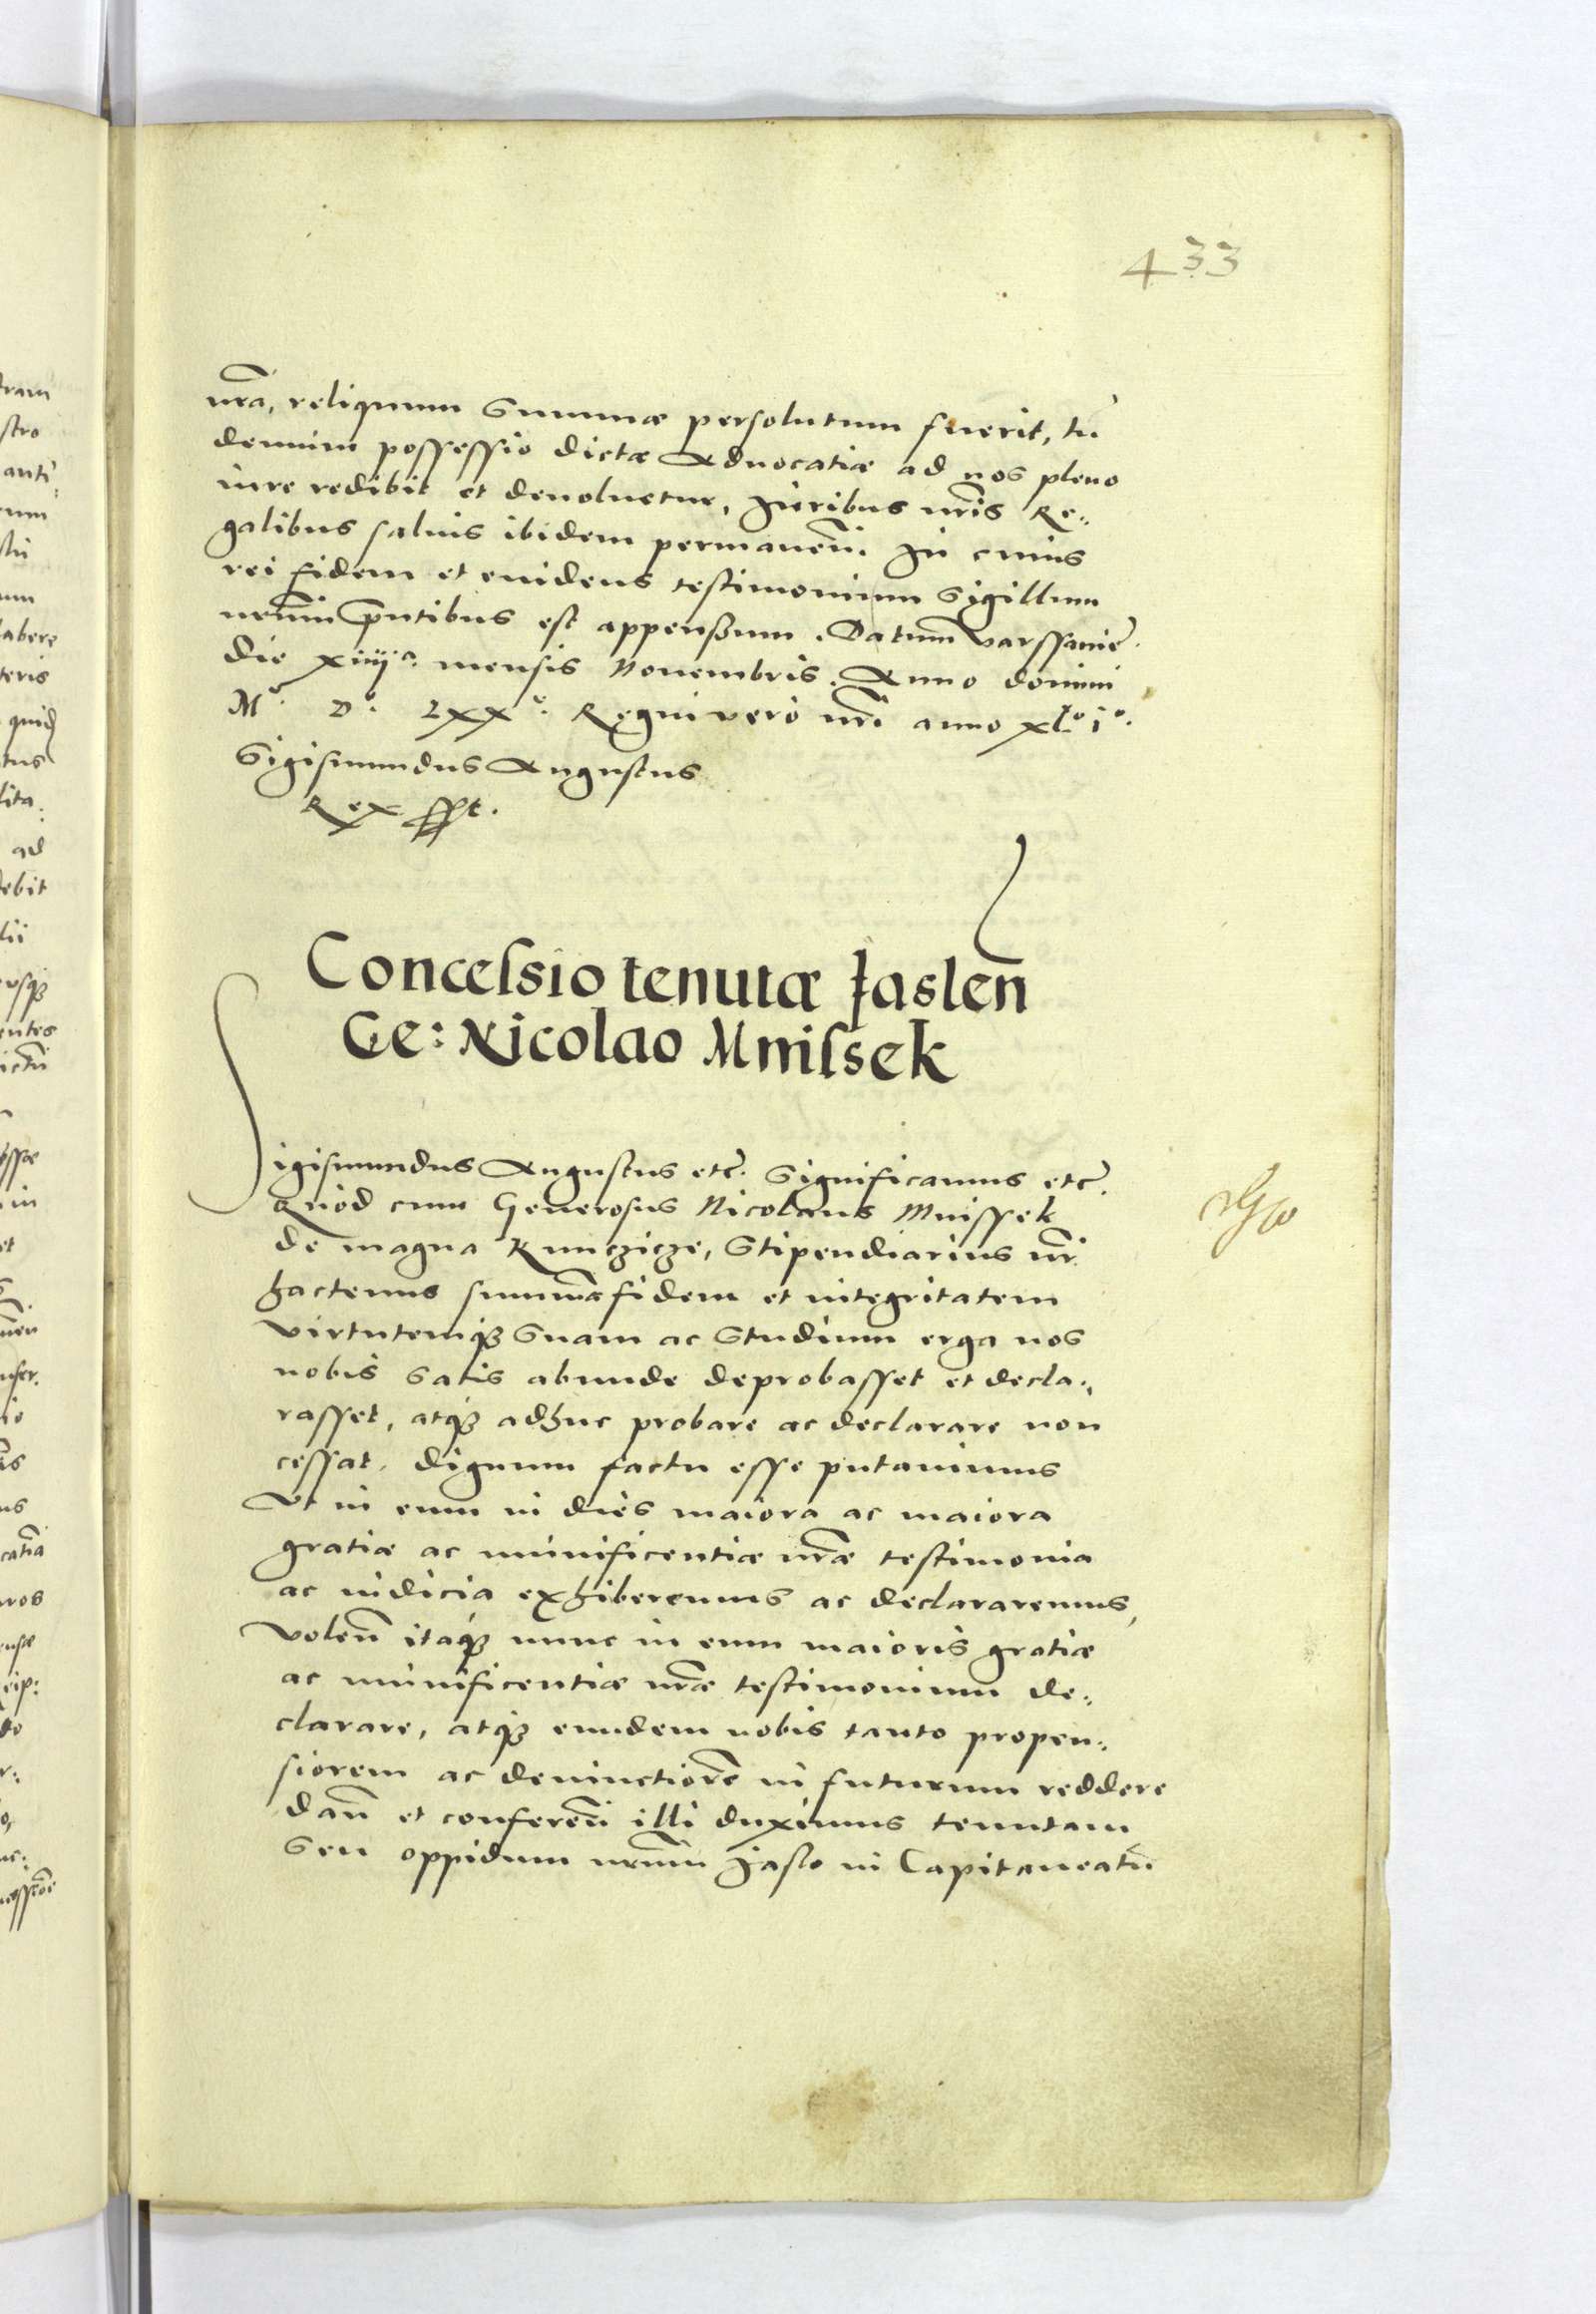 433
nr̃a, reliquum Summæ persolutum fuerit, tũ
demum possessio dictæ Aduocatiæ ad nos pleno
iure redibit et deuoluetur, Juribus nr̃is Re-
galibus saluis ibidem permanen̄. In cuius
rei fidem et euidens testimonium Sigillum
nr̃um p̃ntibus est appensum. Datum̃ Varssauiæ.
Die xiiij.ª mensis Nouembris. Anno domini
Mº. Dº. Lxxº. Regni vero nr̃i anno xLº iº.
Sigismundus Augustus
Rex sspt.
Concessio tenutæ Jaslen̄
Ge: Nicolao Mnissek
Sigismundus Augustus etc̃. Significamus etc̃.
Quod cum Generosus Nicolaus Mnissek
de magna Kunczicze, Stipendiarius nr̃.
hactenus summã fidem et integritatem
virtutemq̃ Suam ac Studium erga nos
nobis satis abunde deprobasset et decla-
rasset, atq̃ adhuc probare ac declarare non
cessat. dignum factu esse putauimus
Vt in eum in dies maiora ac maiora
gratiæ ac munificentiæ nr̃æ testimonia
ac indicia exhiberemus ac declararemus,
volen̄ itaq̃ nunc in eum maioris gratiæ
ac munificentiæ nr̃æ testimonium de-
clarare, atq̃ eundem nobis tanto propen-
siorem ac deuinctiorẽ in futurum reddere
dan̄ et conferen̄ illi duximus tenutam
Seu oppidum nr̃um Jaslo in Capitaneatu